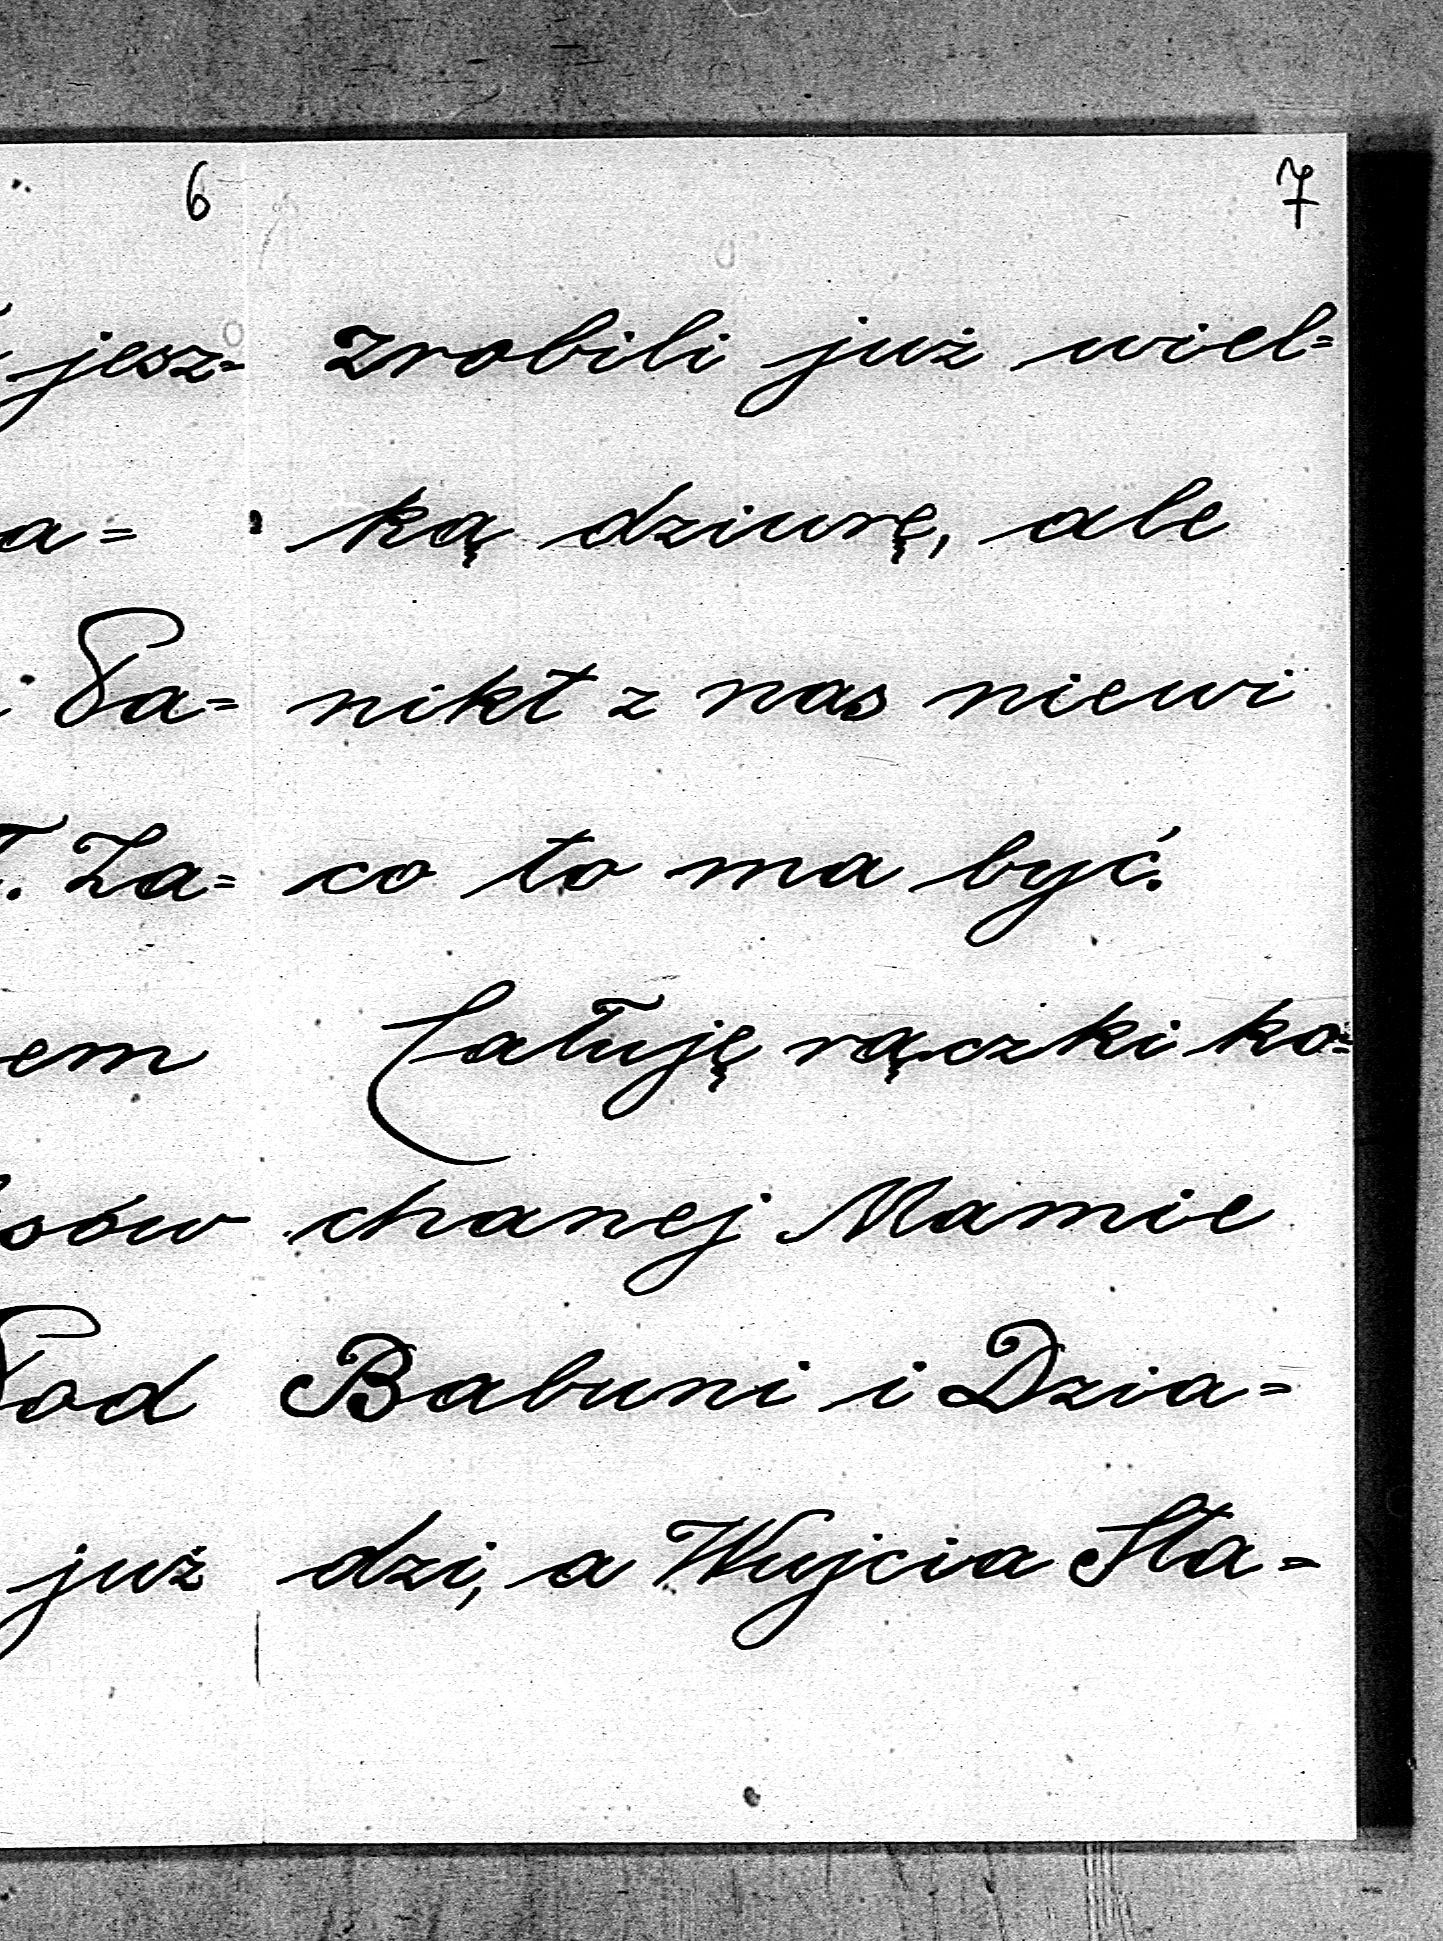 6
jesz-
a=
Pa=
Za=
em
sów
Pod
już
7
zrobili już wiel=
ką dziurę, ale
nikt z nas niewi
co to ma być.
Całuję rączki ko=
chanej Mamie
Babuni i Dzia=
dzi, a Wujcia Sta=